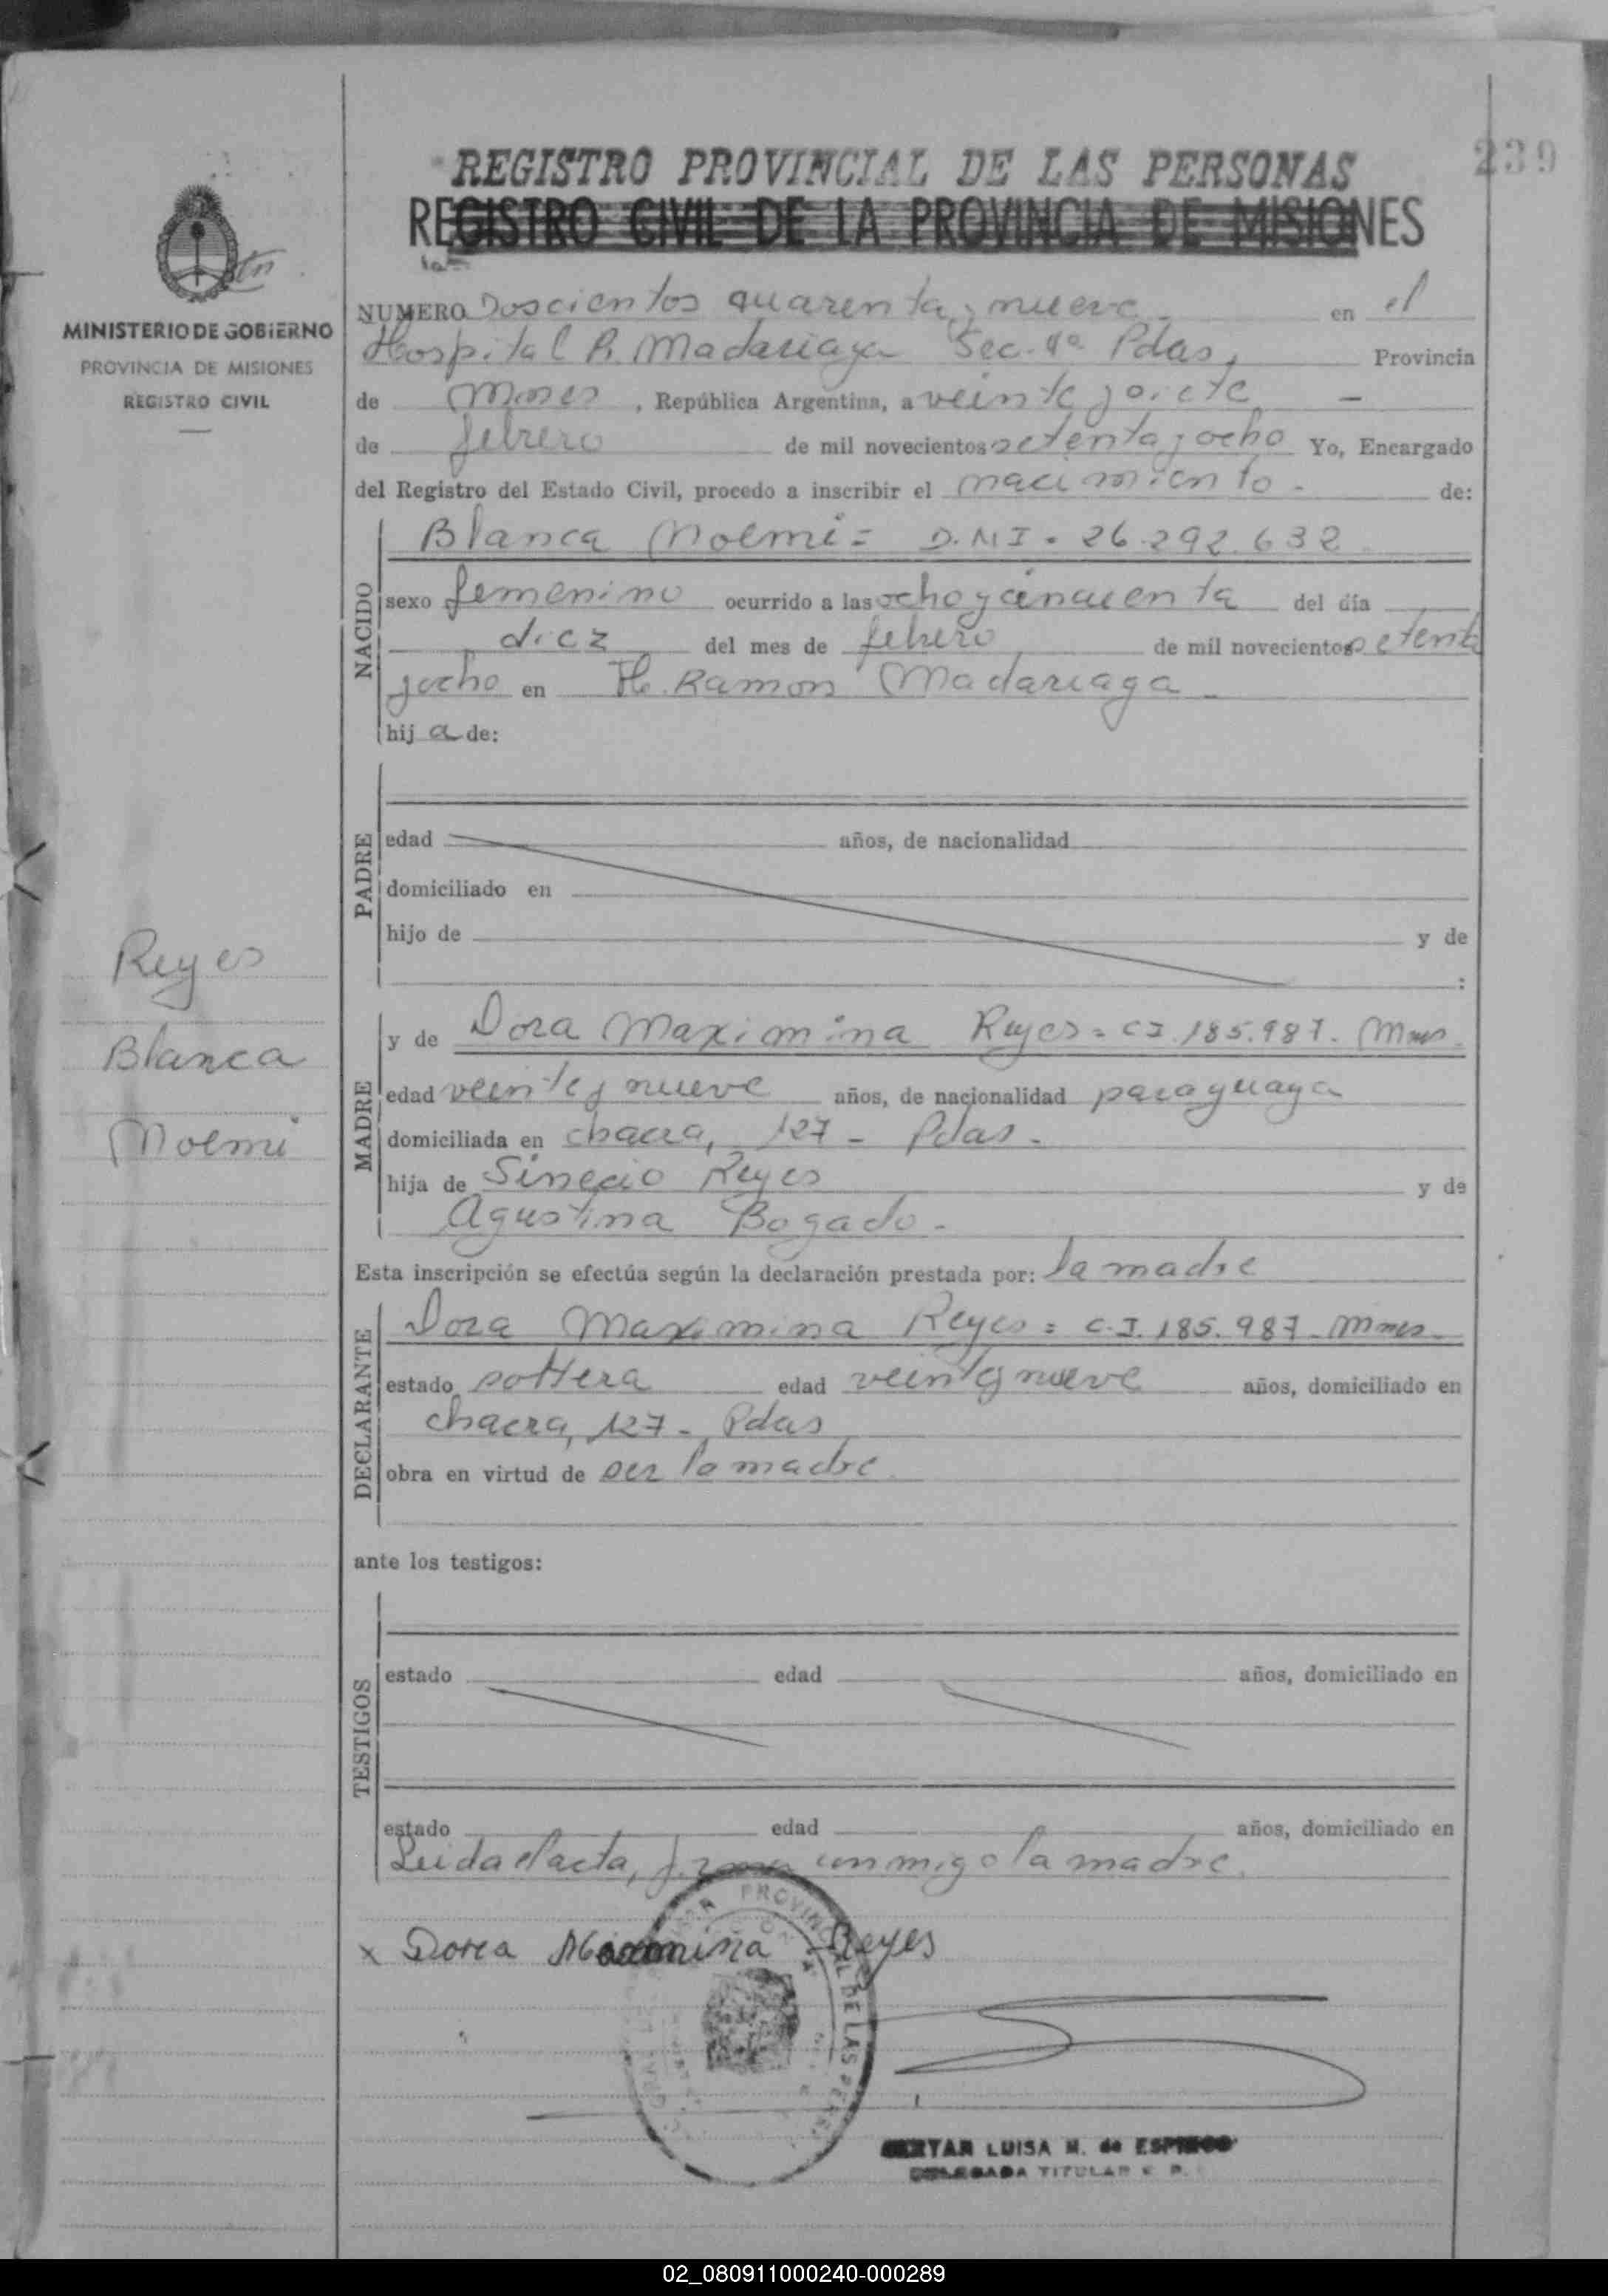 239
REGISTRO PROVINCIAL DE LAS PERSONAS
REGISTRO CIVIL DE LA PROVINCIA DE MISIONES
MINISTERIO DE GOBIERNO
PROVINCIA DE MISIONES
REGISTRO CIVIL
Reyes
Blanca
Noemi
NUMERO Doscientos cuarenta y nueve en el
Hospital R. Madariaga Sec. 4ª Pdas, Provincia
de Mnes, República Argentina, a veinte y siete
de febrero de mil novecientos setenta y ocho Yo, Encargado
del Registro del Estado Civil, procedo a inscribir el nacimiento - de:
NACIDO
Blanca Noemi = D.N.I. 26.292.632
sexo femenino ocurrido a las ocho y cincuenta del día
diez del mes de febrero de mil novecientos setenta
y ocho en H. Ramon Madariaga
hij a de:
PADRE
edad años, de nacionalidad
domiciliado en
hijo de y de
:
MADRE
y de Dora Maximina Reyes = CI 185.987. Mnes.
edad veinte y nueve años, de nacionalidad paraguaya
domiciliada en chacra, 127 - Pdas -
hija de Sinecio Reyes y de
Agustina Bogado -
Esta inscripción se efectúa según la declaración prestada por: la madre
DECLARANTE
Dora Maximina Reyes = C.I. 185.987 - Mnes.
estado soltera edad veinte y nueve años, domiciliado en
chacra, 127 - Pdas
obra en virtud de ser la madre
ante los testigos:
TESTIGOS
estado edad años, domiciliado en
estado edad años, domiciliado en
Leida el acta, firma conmigo la madre.
x Dora Maximina Reyes
PROVINCIAL DE LAS PERS
LUISA M. de
DELEGADA TITULAR
02_080911000240-000289